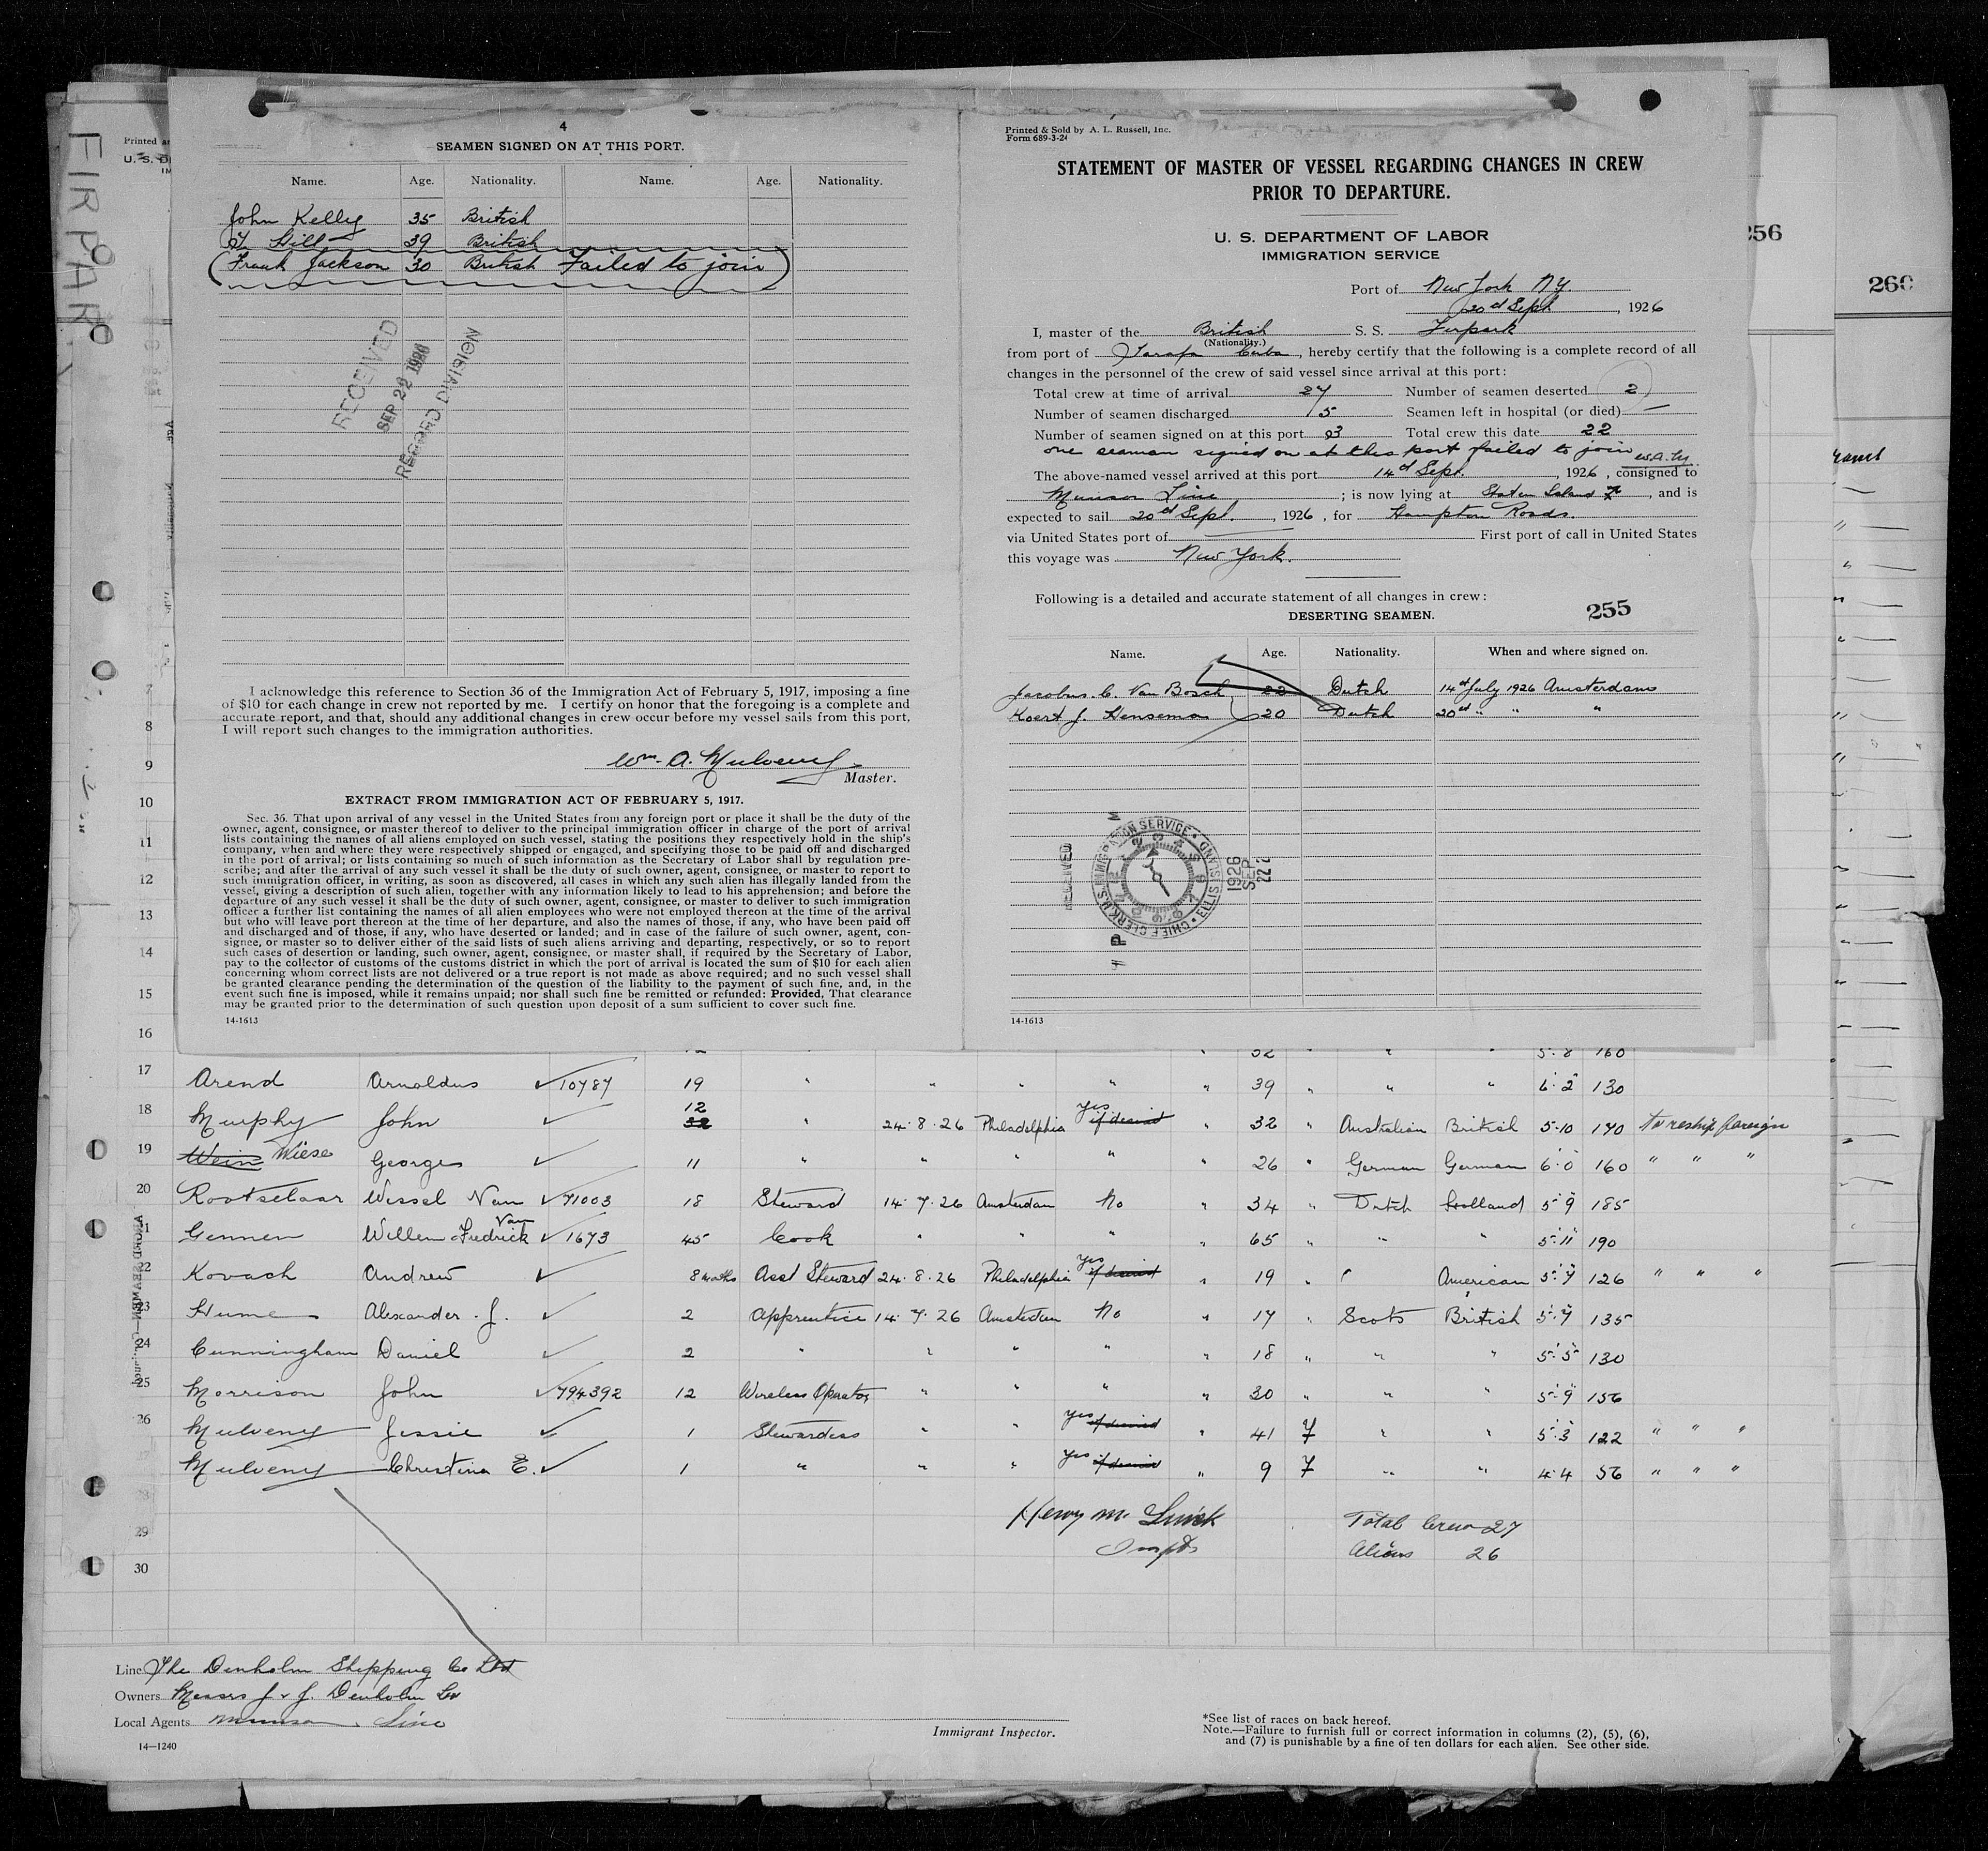 FIRPARK
Printed a
U. S. D
IM
4
SEAMEN SIGNED ON AT THIS PORT.
Name. Age. Nationality. Name. Age. Nationality.
John Kelly 35 British
Hill 39 British
(Frank Jackson 30 British Failed to join)
RECEIVED
SEP 22 1926
RECORD DIVISION
I acknowledge this reference to Section 36 of the Immigration Act of February 5, 1917, imposing a fine
of $10 for each change in crew not reported by me. I certify on honor that the foregoing is a complete and
accurate report, and that, should any additional changes in crew occur before my vessel sails from this port,
I will report such changes to the immigration authorities.
Wm. A. Mulveny
Master.
EXTRACT FROM IMMIGRATION ACT OF FEBRUARY 5, 1917.
Sec. 36. That upon arrival of any vessel in the United States from any foreign port or place it shall be the duty of the
owner, agent, consignee, or master thereof to deliver to the principal immigration officer in charge of the port of arrival
lists containing the names of all aliens employed on such vessel, stating the positions they respectively hold in the ship's
company, when and where they were respectively shipped or engaged, and specifying those to be paid off and discharged
in the port of arrival; or lists containing so much of such information as the Secretary of Labor shall by regulation pre-
scribe; and after the arrival of any such vessel it shall be the duty of such owner, agent, consignee, or master to report to
such immigration officer, in writing, as soon as discovered, all cases in which any such alien has illegally landed from the
vessel, giving a description of such alien, together with any information likely to lead to his apprehension; and before the
departure of any such vessel it shall be the duty of such owner, agent, consignee, or master to deliver to such immigration
officer a further list containing the names of all alien employees who were not employed thereon at the time of the arrival
but who will leave port thereon at the time of her departure, and also the names of those, if any, who have been paid off
and discharged and of those, if any, who have deserted or landed; and in case of the failure of such owner, agent, con-
signee, or master so to deliver either of the said lists of such aliens arriving and departing, respectively, or so to report
such cases of desertion or landing, such owner, agent, consignee, or master shall, if required by the Secretary of Labor,
pay to the collector of customs of the customs district in which the port of arrival is located the sum of $10 for each alien
concerning whom correct lists are not delivered or a true report is not made as above required; and no such vessel shall
be granted clearance pending the determination of the question of the liability to the payment of such fine, and, in the
event such fine is imposed, while it remains unpaid; nor shall such fine be remitted or refunded: Provided, That clearance
may be granted prior to the determination of such question upon deposit of a sum sufficient to cover such fine.
14-1613
Printed & Sold by A. L. Russell, Inc.
Form 689-3-24
STATEMENT OF MASTER OF VESSEL REGARDING CHANGES IN CREW
PRIOR TO DEPARTURE.
U. S. DEPARTMENT OF LABOR
IMMIGRATION SERVICE
Port of New York NY.
20th Sept, 1926
I, master of the British S. S. Firpark
(Nationality.)
from port of Tarafa Cuba, hereby certify that the following is a complete record of all
changes in the personnel of the crew of said vessel since arrival at this port:
Total crew at time of arrival 27 Number of seamen deserted 2
Number of seamen discharged 5 Seamen left in hospital (or died) —
Number of seamen signed on at this port 3 Total crew this date 22
one seaman signed on at this port failed to join W.A.M.
The above-named vessel arrived at this port 14th Sept., 1926, consigned to
Munson Line; is now lying at Staten Island, and is
expected to sail 20th Sept., 1926, for Hampton Roads.
via United States port of — First port of call in United States
this voyage was New York.
Following is a detailed and accurate statement of all changes in crew:
DESERTING SEAMEN. 255
Name. Age. Nationality. When and where signed on.
Jacobus C. Van Bosch 22 Dutch 14th July 1926 Amsterdam
Koert J. Henseman 20 Dutch 20th " " "
RECEIVED
U.S. IMMIGRATION SERVICE • ELLIS ISLAND • CHIEF CLERK
1926
SEP
22
14-1613
256
260
7
8
9
10
11
12
13
14
15
16
32 " " 5·8 160
17 Arend Arnoldus ✓ 10787 19 " " " " " 39 " " " 6·2 130
18 Murphy John ✓ 12 32 " 24·8·26 Philadelphia yes if desired " 32 " Australian British 5·10 170 to reship foreign
19 Wein Wiese Georges ✓ 11 " " " " " 26 " German German 6·0 160 " " "
20 Rootselaar Wessel Van ✓ 71003 18 Steward 14·7·26 Amsterdam No " 34 " Dutch Holland 5·9 185
21 Gennen Willem Fredrick Van ✓ 1673 45 Cook " " " " 65 " " " 5·11 190
22 Kovach Andrew ✓ 8 months Asst Steward 24·8·26 Philadelphia yes if desired " 19 " " American 5·7 126 " " "
23 Hume Alexander J. ✓ 2 Apprentice 14·7·26 Amsterdam No " 17 " Scots British 5·7 135
24 Cunningham Daniel ✓ 2 " " " " " 18 " " " 5·5 130
25 Morrison John ✓ 794392 12 Wireless Operator " " " " 30 " " " 5·9 156
26 Mulveny Jessie ✓ 1 Stewardess " " yes if desired " 41 F " " 5·3 122 " " "
Mulveny Christina E. ✓ 1 " " " yes if desired " 9 F " " 4·4 56 " " "
28
29
30
Total Crew 27
Aliens 26
Line The Denholm Shipping Co Ltd
Owners Messrs J & J. Denholm Ltd
Local Agents Munson Line
14—1240
Immigrant Inspector.
*See list of races on back hereof.
Note.—Failure to furnish full or correct information in columns (2), (5), (6),
and (7) is punishable by a fine of ten dollars for each alien. See other side.